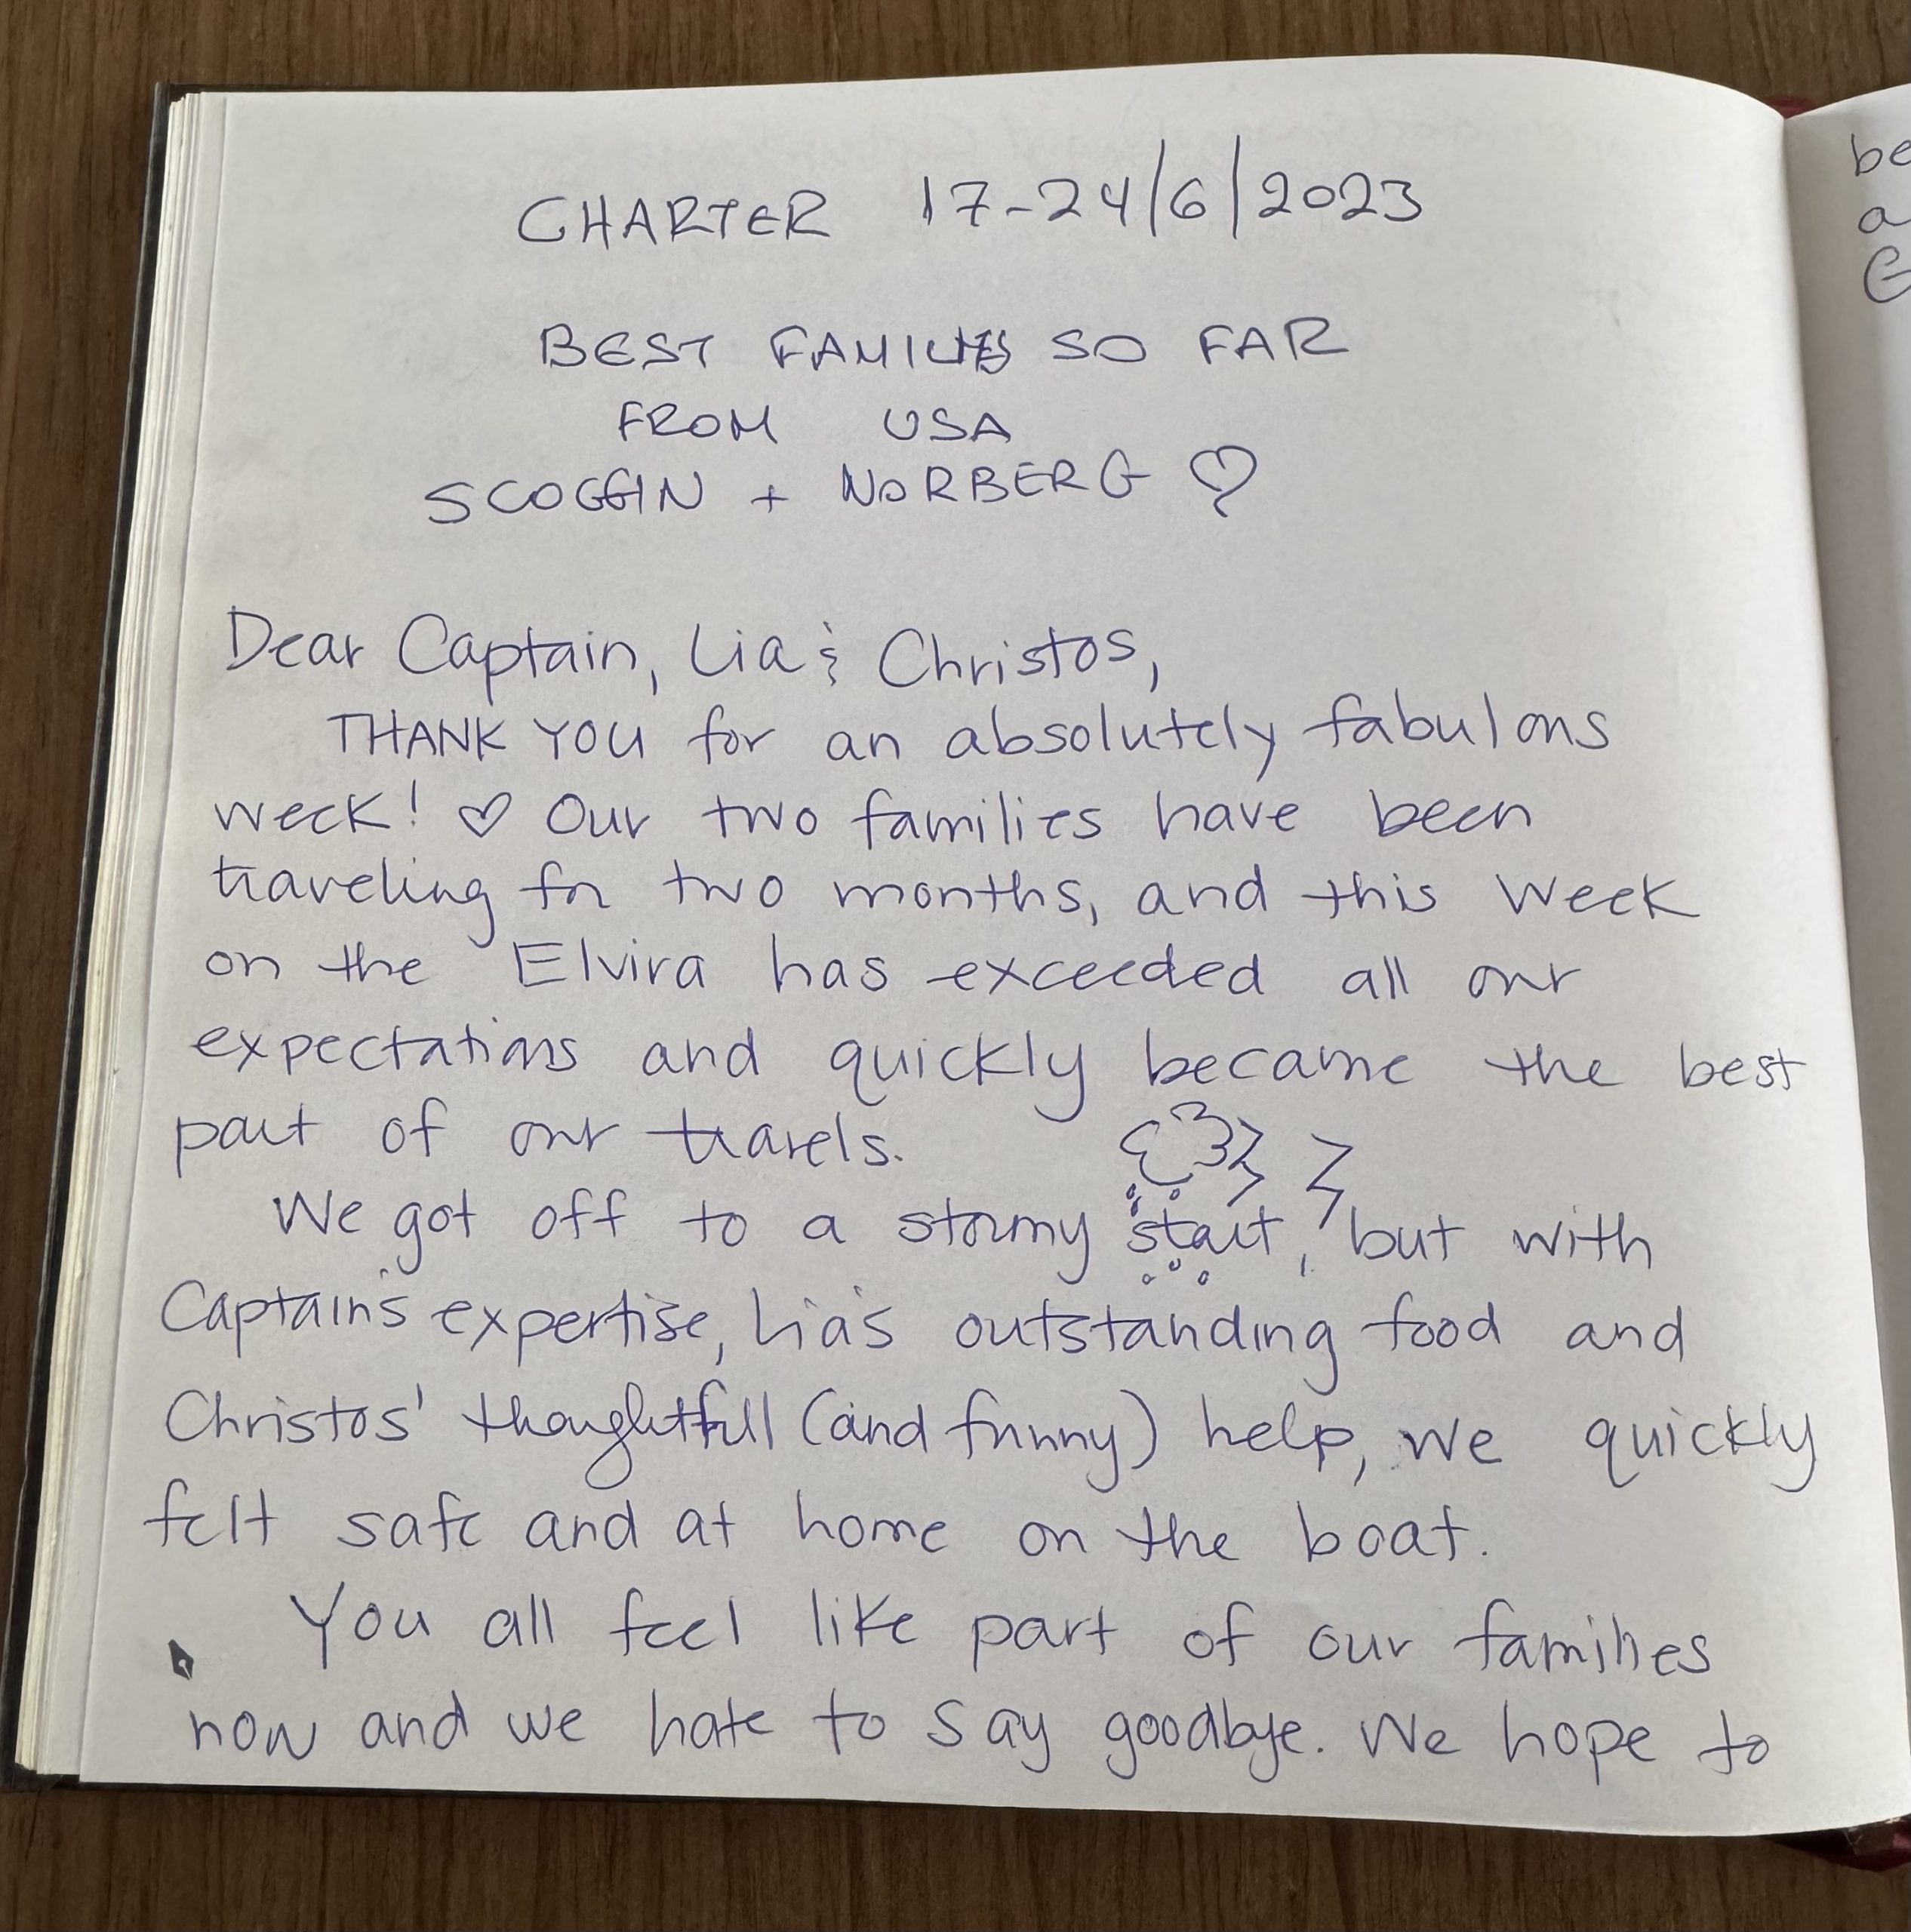 CHARTER 17-24/6/2023
BEST FAMILIES SO FAR
FROM USA
SCOGGIN + NORBERG ♡
Dear Captain, Lia & Christos,
THANK YOU for an absolutely fabulous
week! ♡ Our two families have been
traveling for two months, and this week
on the Elvira has exceeded all our
expectations and quickly became the best
part of our travels.
We got off to a stormy start, but with
Captain's expertise, Lia's outstanding food and
Christos' thoughtfull (and funny) help, we quickly
felt safe and at home on the boat.
You all feel like part of our families
now and we hate to say goodbye. We hope to
be
a